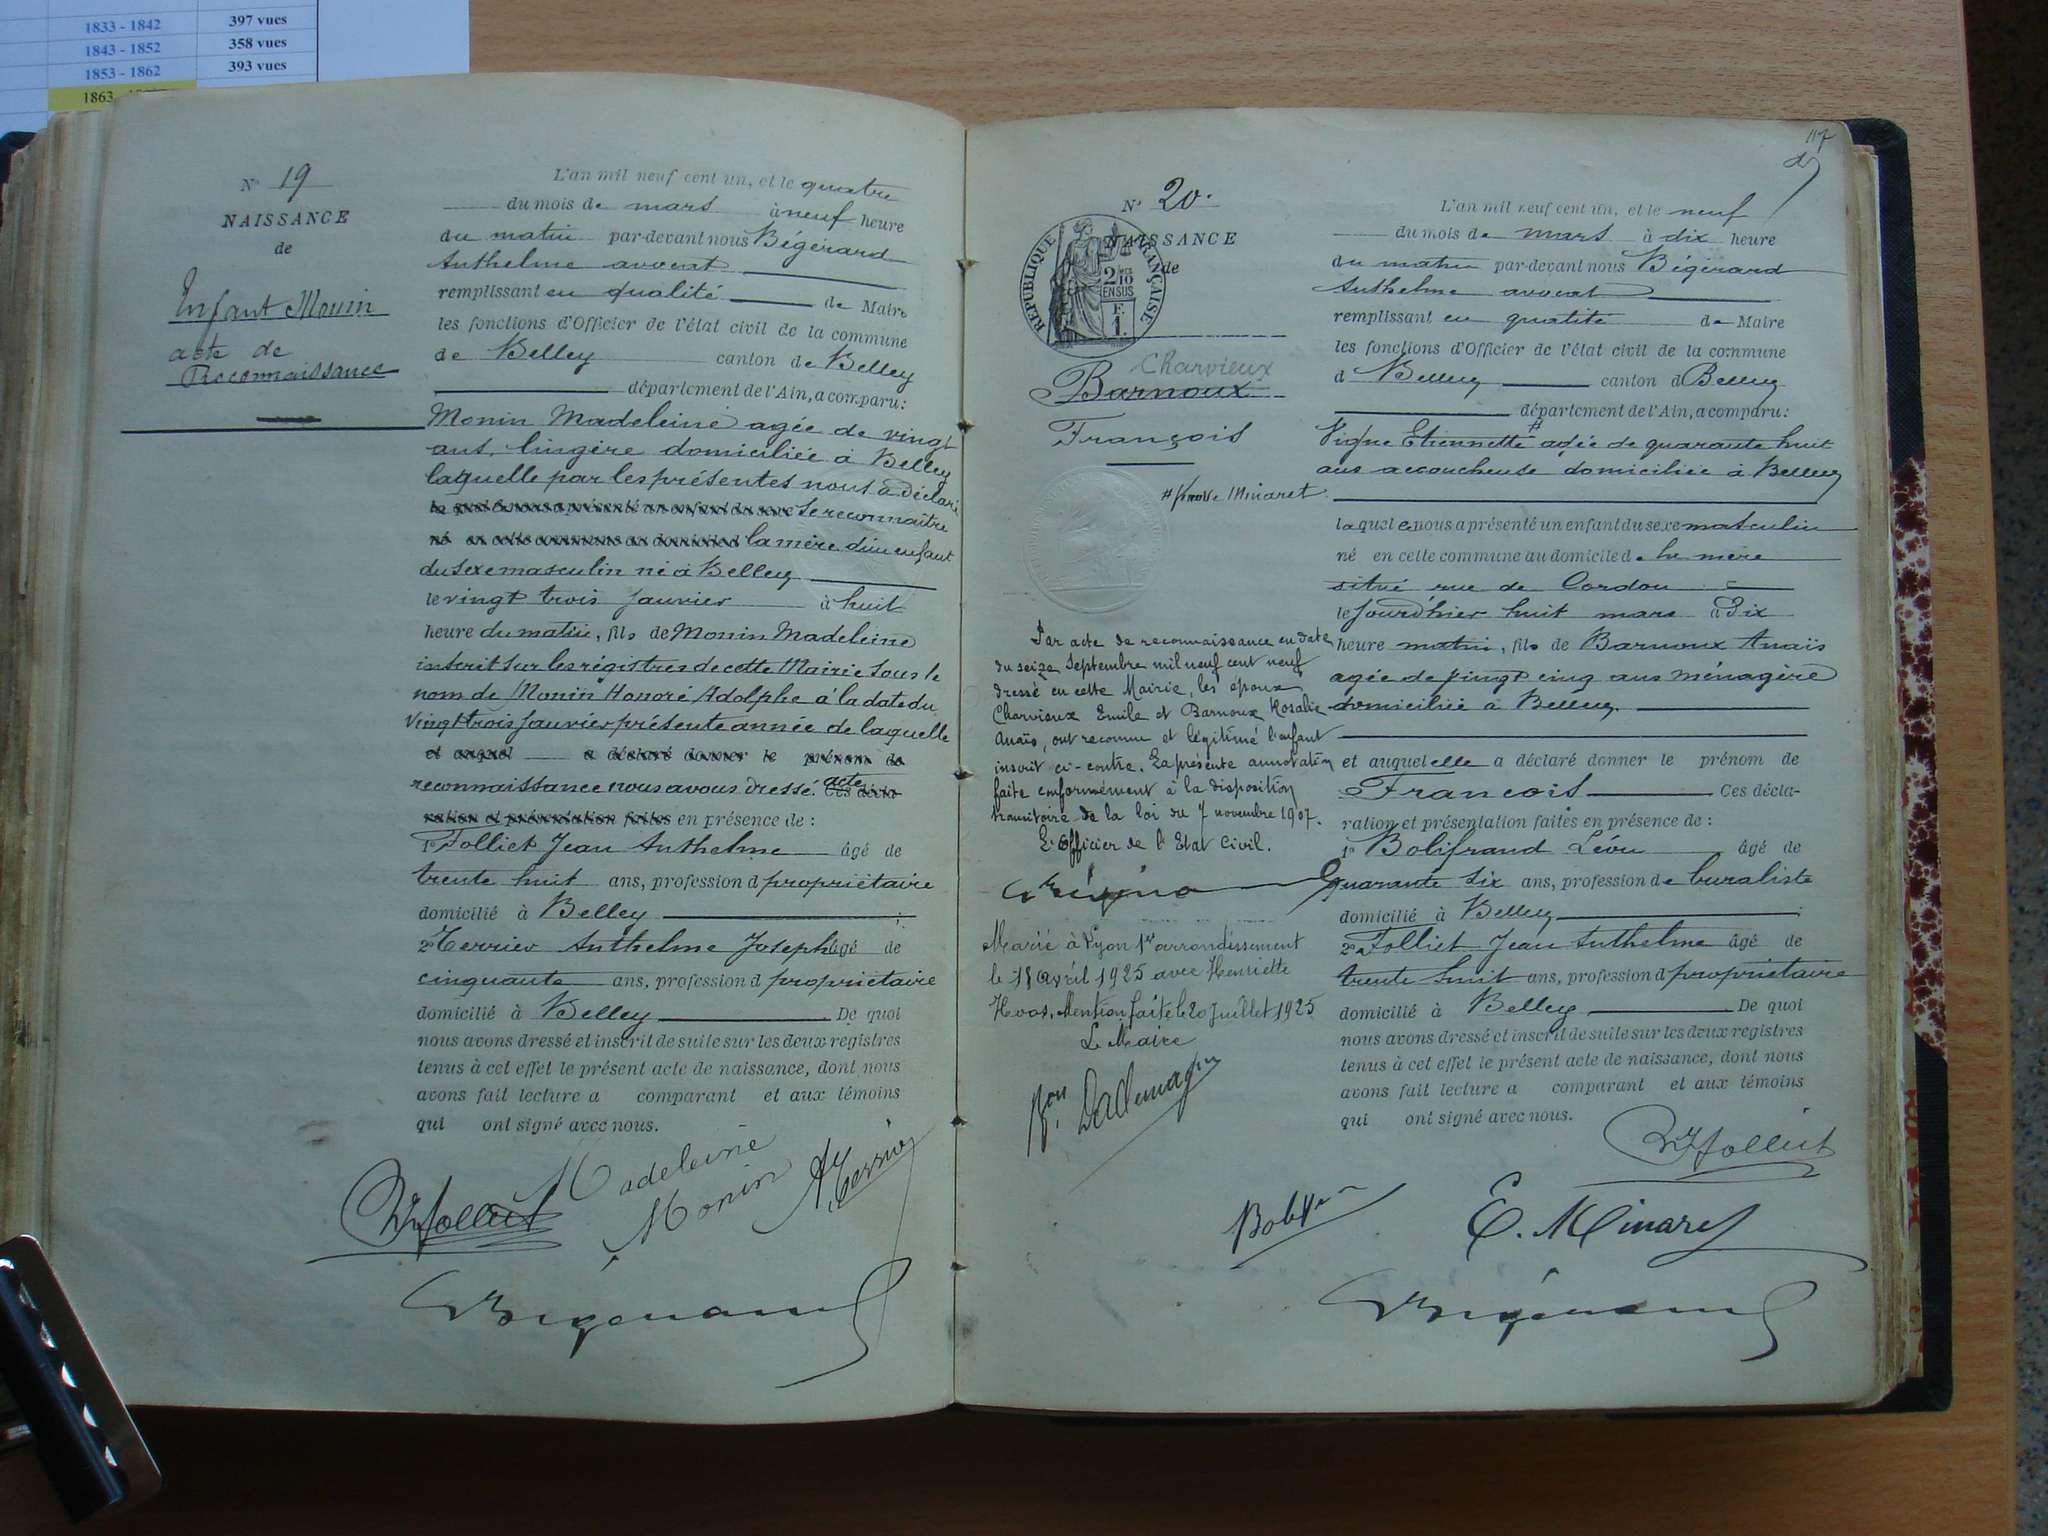 1833 - 1842 397 vues
1843 - 1852 358 vues
1853 - 1862 393 vues
1863
N° 19
NAISSANCE
de
Enfant Monin
acte de
Reconnaissance
L'an mil neuf cent un, et le quatre
du mois de mars à neuf heure
du matin par-devant nous Bégérard
Anthelme avocat
remplissant en qualité de Maire
les fonctions d'Officier de l'état civil de la commune
de Belley canton de Belley
département de l'Ain, a comparu:
Monin Madeleine agée de vingt
ans, lingère domiciliée à Belley
laquelle par les présentes nous a déclaré
le quel nous a présenté un enfant du sexe se reconnaître
né en cette commune au domicile d la mère d'un enfant
du sexe masculin né à Belley
le vingt trois janvier à huit
heure du matin, fils de Monin Madeleine
inscrit sur les régistres de cette Mairie sous le
nom de Monin Honoré Adolphe à la date du
vingt trois janvier présente année de laquelle
et auquel a déclaré donner le prénom de
reconnaissance nous avons dressé acte Ces décla-
ration et présentation faites en présence de :
1° Tolliet Jean Anthelme âgé de
trente huit ans, profession d propriétaire
domicilié à Belley ;
2° Terrier Anthelme Joseph âgé de
cinquante ans, profession d propriétaire
domicilié à Belley De quoi
nous avons dressé et inscrit de suite sur les deux registres
tenus à cet effet le présent acte de naissance, dont nous
avons fait lecture a comparant et aux témoins
qui ont signé avec nous.
Madeleine
Monin
Tolliet
Terrier
Bégérard
117
N° 20.
NAISSANCE
de
RÉPUBLIQUE FRANÇAISE
2/10 EN SUS
F.
1.
Charvieux
Barnoux
François
# femme Minaret.
Par acte de reconnaissance en date
du seize Septembre mil neuf cent neuf
dressé en cette Mairie, les époux
Charvieux Emile et Barnoux Rosalie
Anaïs, ont reconnu et légitimé l'enfant
inscrit ci-contre. La présente annotation
faite conformément à la disposition
transitoire de la loi du 7 novembre 1907.
L'Officier de l'Etat Civil.
Marié à Lyon 1er arrondissement
le 18 avril 1925 avec Henriette
Hoos, Mention faite le 20 Juillet 1925
Le Maire
L'an mil neuf cent un, et le neuf
du mois de mars à dix heure
du matin par-devant nous Bégérard
Anthelme avocat
remplissant en qualité de Maire
les fonctions d'Officier de l'état civil de la commune
d Belley canton d Belley
département de l'Ain, a comparu:
Vigne Etiennette # agée de quarante huit
ans accoucheuse domiciliée à Belley
laquelle nous a présenté un enfant du sexe masculin
né en cette commune au domicile de la mère
situé rue de Cordon
le jourd'hier huit mars à Dix
heure matin, fils de Barnoux Anaïs
agée de vingt cinq ans ménagère
domiciliée à Belley
et auquel elle a déclaré donner le prénom de
François Ces décla-
ration et présentation faites en présence de :
1° Bolifraud Léon âgé de
quarante six ans, profession de buraliste
domicilié à Belley ;
2° Tolliet Jean Anthelme âgé de
trente huit ans, profession d propriétaire
domicilié à Belley De quoi
nous avons dressé et inscrit de suite sur les deux registres
tenus à cet effet le présent acte de naissance, dont nous
avons fait lecture a comparant et aux témoins
qui ont signé avec nous.
Tolliet
E. Minaret
Bégérard